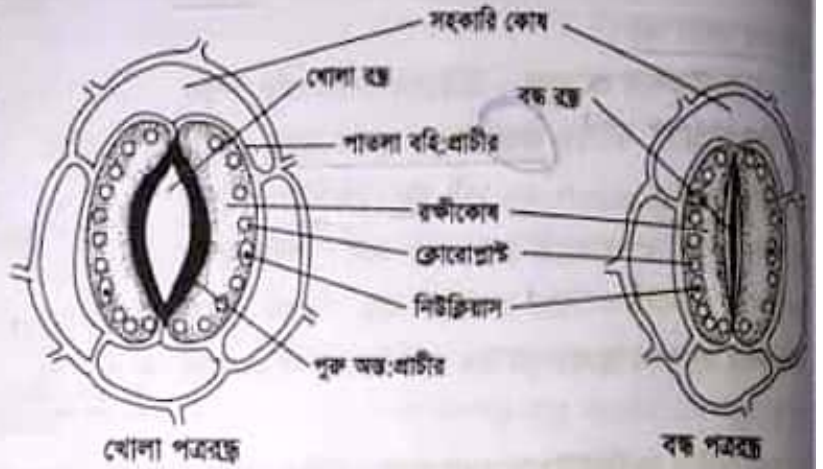 সহকারি কোষ
খোলা রন্ধ্র
বন্ধ রন্ধ্র
পাতলা বহি:প্রাচীর
রক্ষীকোষ
ক্লোরোপ্লাস্ট
নিউক্লিয়াস
পুরু অন্ত:প্রাচীর
খোলা পত্ররন্ধ্র
বন্ধ পত্ররন্ধ্র